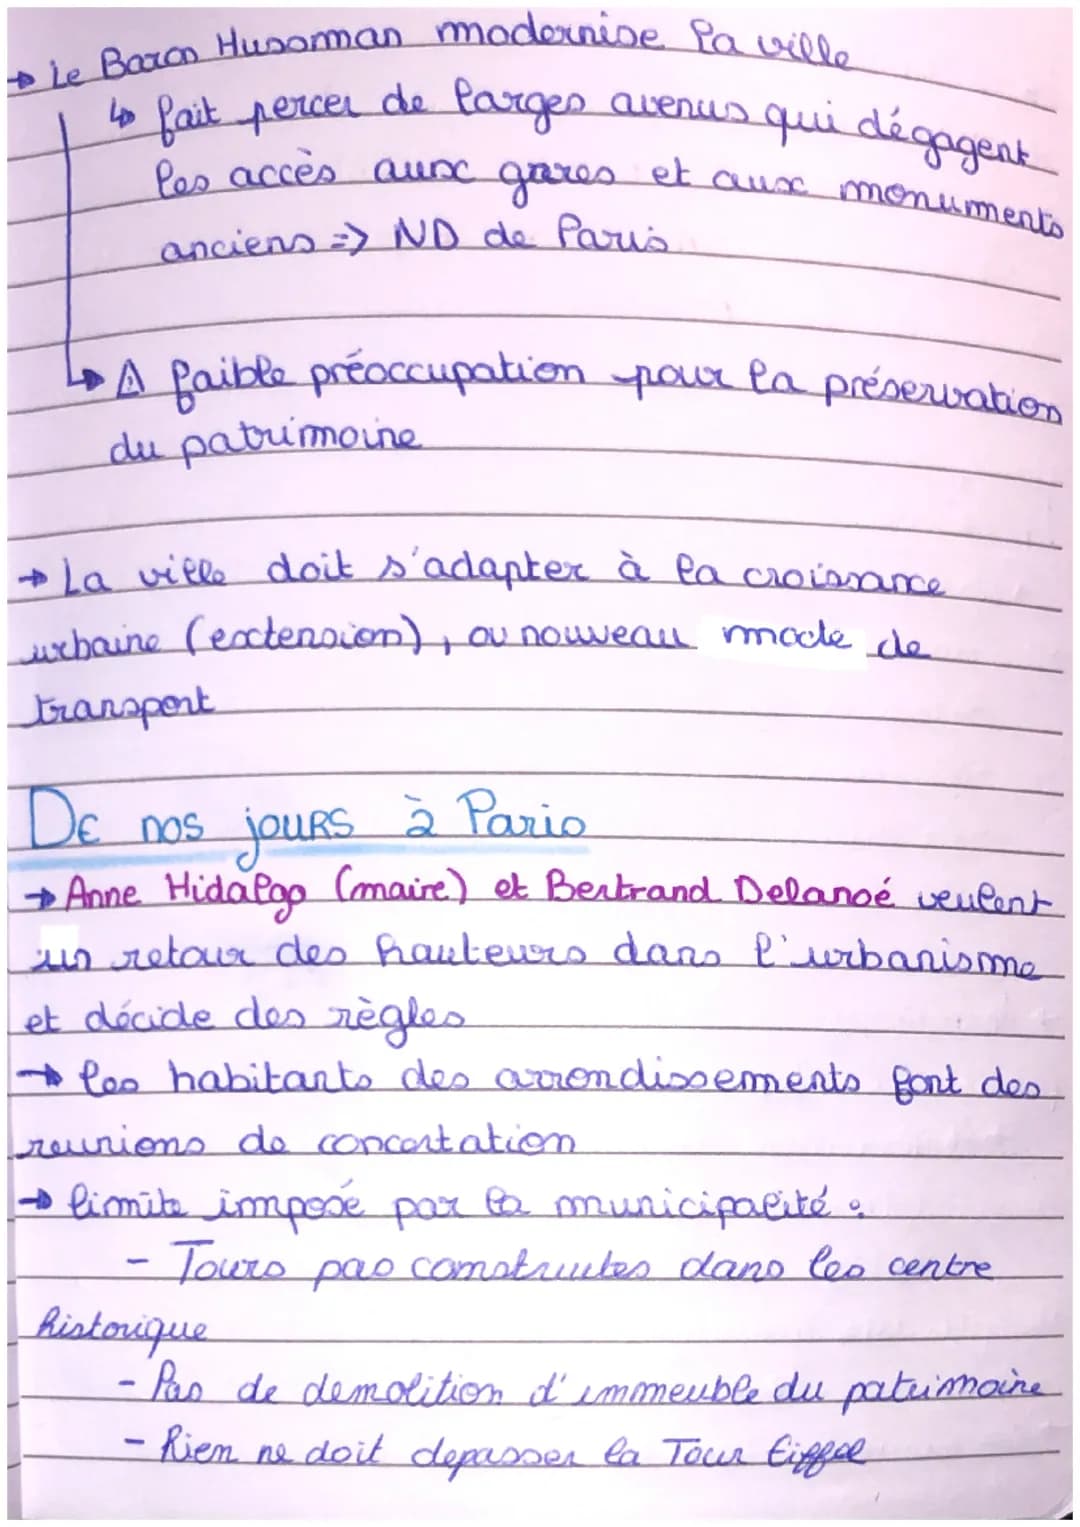 → Le Baron Husomman modernise la ville
↳ fait percer de larges avenus qui dégagent
les accès aux gares et aux monuments
anciens => ND de Paris
↳ ⚠ faible préoccupation pour la préservation
du patrimoine
→ La ville doit s'adapter à la croissance
urbaine (extension), au nouveau mode de
transport
De nos jours à Paris
→ Anne Hidalgo (maire) et Bertrand Delanoé veulent
un retour des hauteurs dans l'urbanisme
et décide des règles
→ les habitants des arrondissements font des
reunions de concertation
→ limite imposé par la municipalité :
- Tours pas construites dans les centre
historique
- Pas de demolition d'immeuble du patrimoine
- Rien ne doit depasser la Tour Eiffel